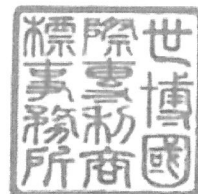 世博國
際專利商
標事務所